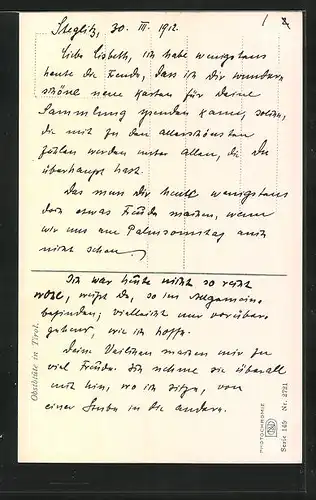 1
Steglitz, 30. III. 1912.
Liebe Lisbeth, ich habe wenigstens
heute die Freude, dass ich Dir wunder-
schöne neue Karten für Deine
Sammlung spenden kann, solche,
die mit zu den allerschönsten
zählen werden unter allen, die Du
überhaupt hast.
Das muss Dir heute wenigstens
doch etwas Freude machen, wenn
wir uns am Palmsonntag auch
nicht sehen.
Ich war heute nicht so recht
wohl, weißt Du, so im Allgemein-
befinden; vielleicht nur vorüber-
gehend, wie ich hoffe.
Deine Veilchen machen mir so
viel Freude. Ich nehme sie überall
mit hin, wo ich sitze, von
einer Stube in die andere.
Obstblüte in Tirol.
PHOTOCHROMIE
Serie 149 Nr. 2721